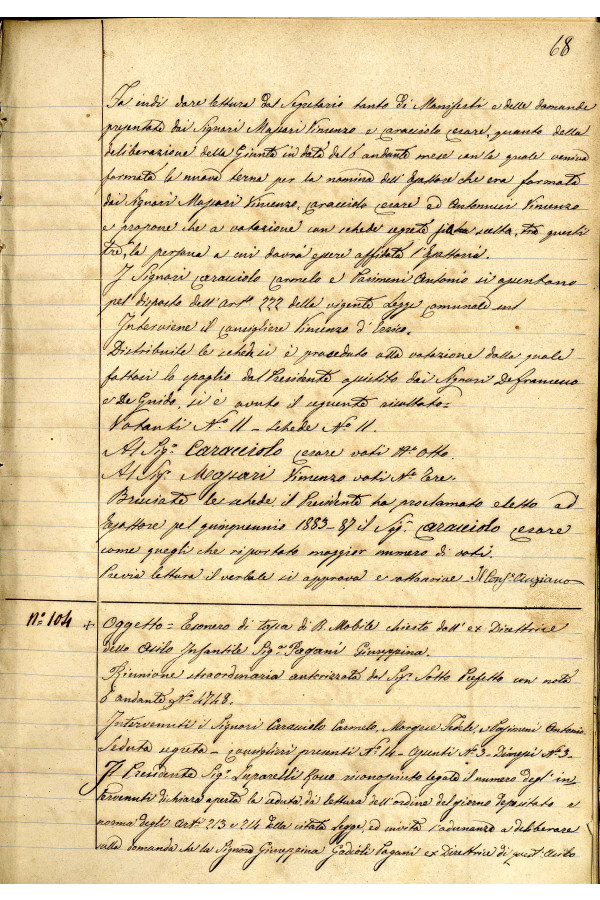 68
Fa indi dare lettura dal Segretario tanto dei Manifesti e delle domande
presentate dai Signori Massari Vincenzo e Caracciolo Cesare, quanto della
deliberazione della Giunta in data del 6 andante mese con la quale veniva
formata la nuova terna per la nomina dell'Esattore che era formata
dai Signori Massari Vincenzo, Caracciolo Cesare ed Antonucci Vincenzo
e propone che a votazione con schede segrete scelta, tra questi
tre, la persona a cui dovrà essere affidata l'Esattoria.
I Signori Caracciolo Carmelo e Antonio si assentano
pel disposto dell'Art. 222 della vigente Legge Comunale
Interviene il Consigliere Vincenzo d'Errico.
Distribuite le schede si è proceduto alla votazione dalla quale
fattosi lo spoglio dal Presidente assistito dai Signori Defrancesco
e De Guido, si è avuto il seguente risultato =
Votanti N.º 11 - Schede N.º 11.
Al Sig.r Caracciolo Cesare voti N.º Otto.
Al Sig.r Massari Vincenzo voti N.º Tre.
Bruciate le schede il Presidente ha proclamato eletto ad
Esattore pel quinquennio 1883-87 il Sig.r Caracciolo Cesare
come quegli che riportato maggior numero di voti.
Previa lettura il verbale si approva e sottoscrive - Il Cons.e Anziano
N.º 104 + Oggetto = Esonero di tassa di R. Mobile chiesto dall'ex Direttrice
dello Asilo Infantile Sig.a Pagani Giuseppina.
Riunione straordinaria autorizzata dal Sig. Sotto Prefetto con nota
6 andante N.º 4748.
Intervenuti i Signori Caracciolo Carmelo, Marzese e Antonio.
Seduta segreta - Consiglieri presenti N.º 14 - Assenti N.º 3 - N.º 3.
Il Presidente Sig.r Luparelli Rocco riconosciuto legale il numero degl'in
tervenuti dichiara aperta la seduta, dà lettura dell'ordine del giorno depositato a
norma degli Art. 213 e 214 della citata Legge, ed invita l'adunanza a deliberare
sulla domanda che la Signora Giuseppina Pagani ex Direttrice di quest'Asilo